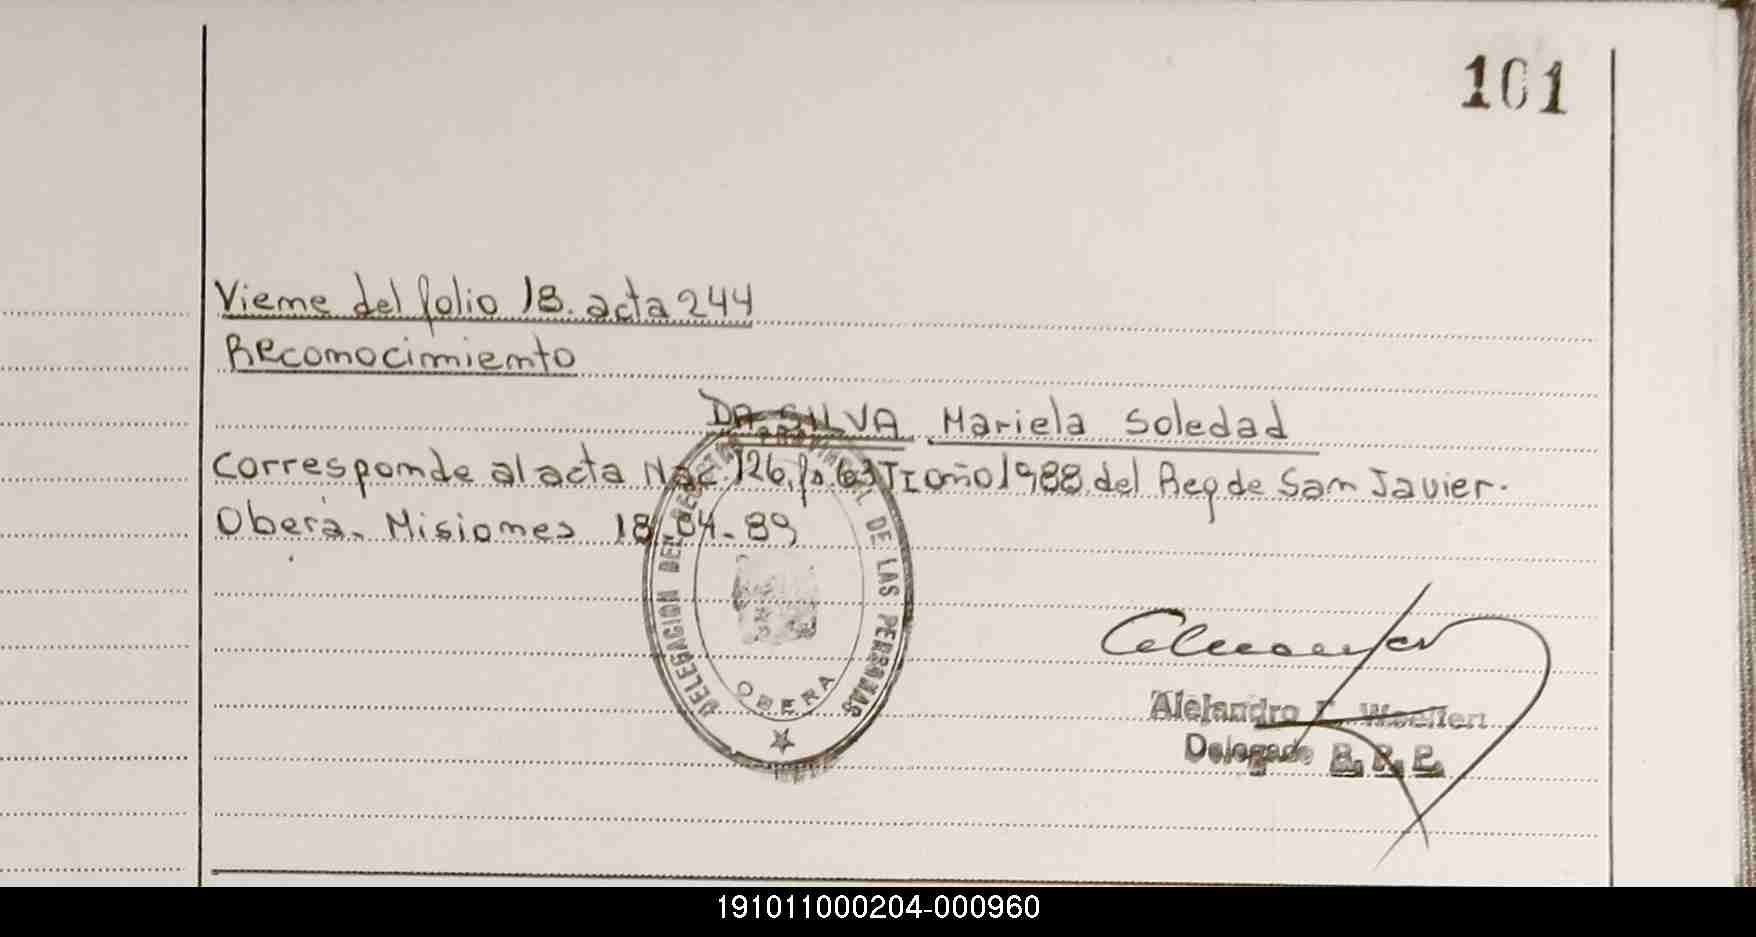 101
Viene del folio 18. acta 244
Reconocimiento
DA SILVA Mariela Soledad
Corresponde al acta Nac. 126, fo. 63 TI año 1988 del Reg de San Javier.
Oberá. Misiones 18.04.89
DELEGACION DEL REGISTRO PROVINCIAL DE LAS PERSONAS
OBERA
Alejandro
Delegado R. P. P.
191011000204-000960